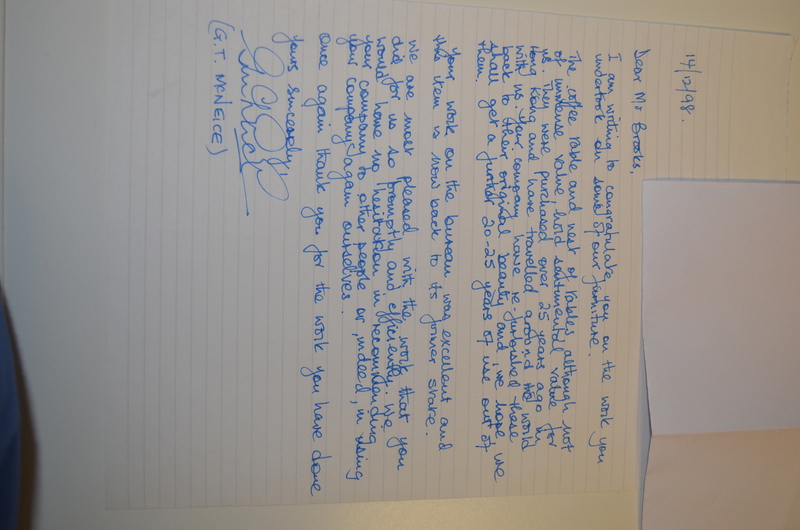 14/12/98.
Dear Mr Brooks,
I am writing to congratulate you on the work you
undertook on some of our furniture.
The coffee table and nest of tables although not
of immense value, hold sentimental value for
us. They were purchased over 25 years ago in
Hong Kong and have travelled around the world
with us. Your company have re-furbished these
back to their original beauty and we hope we
shall get a further 20-25 years of use out of
them.
Your work on the bureau was excellent and
this item is now back to its former state.
We are most pleased with the work that you
did for us so promptly and efficiently. We
would have no hesitation in recommending
your company to other people or, indeed, in using
your company again ourselves.
Once again thank you for the work you have done
Yours sincerely,
(G.T. McNEICE)